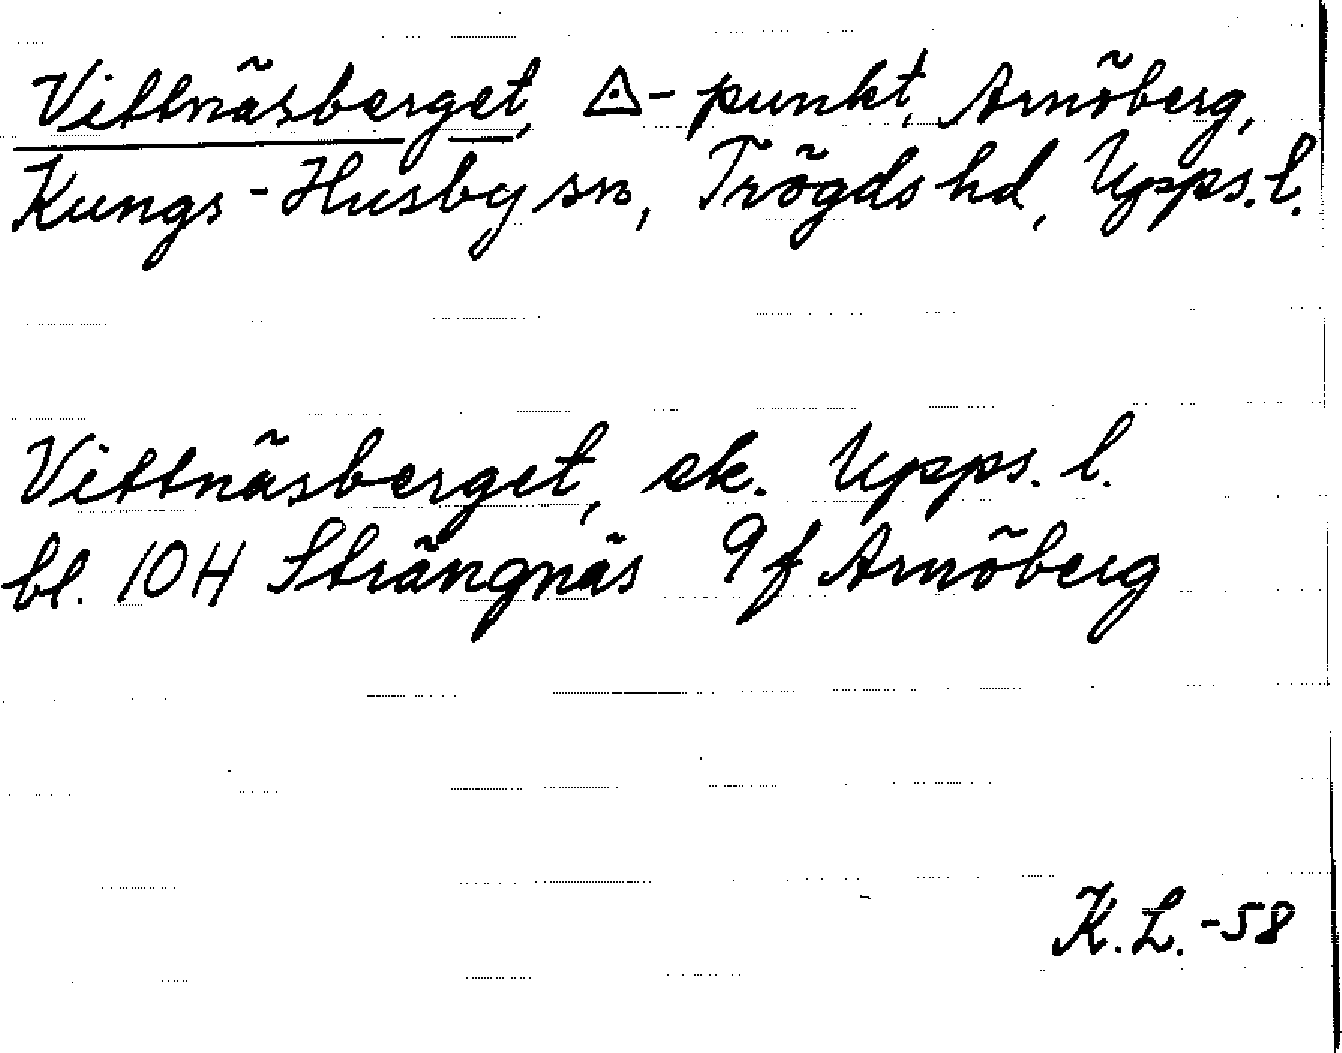 Vittnäsberget, △-punkt, Arnöberg,
Kungs-Husby sn, Trögds hd, Upps. l.
Vittnäsberget, ek. Upps. l.
bl. 10H Strängnäs 9f Arnöberg
K.L.-58